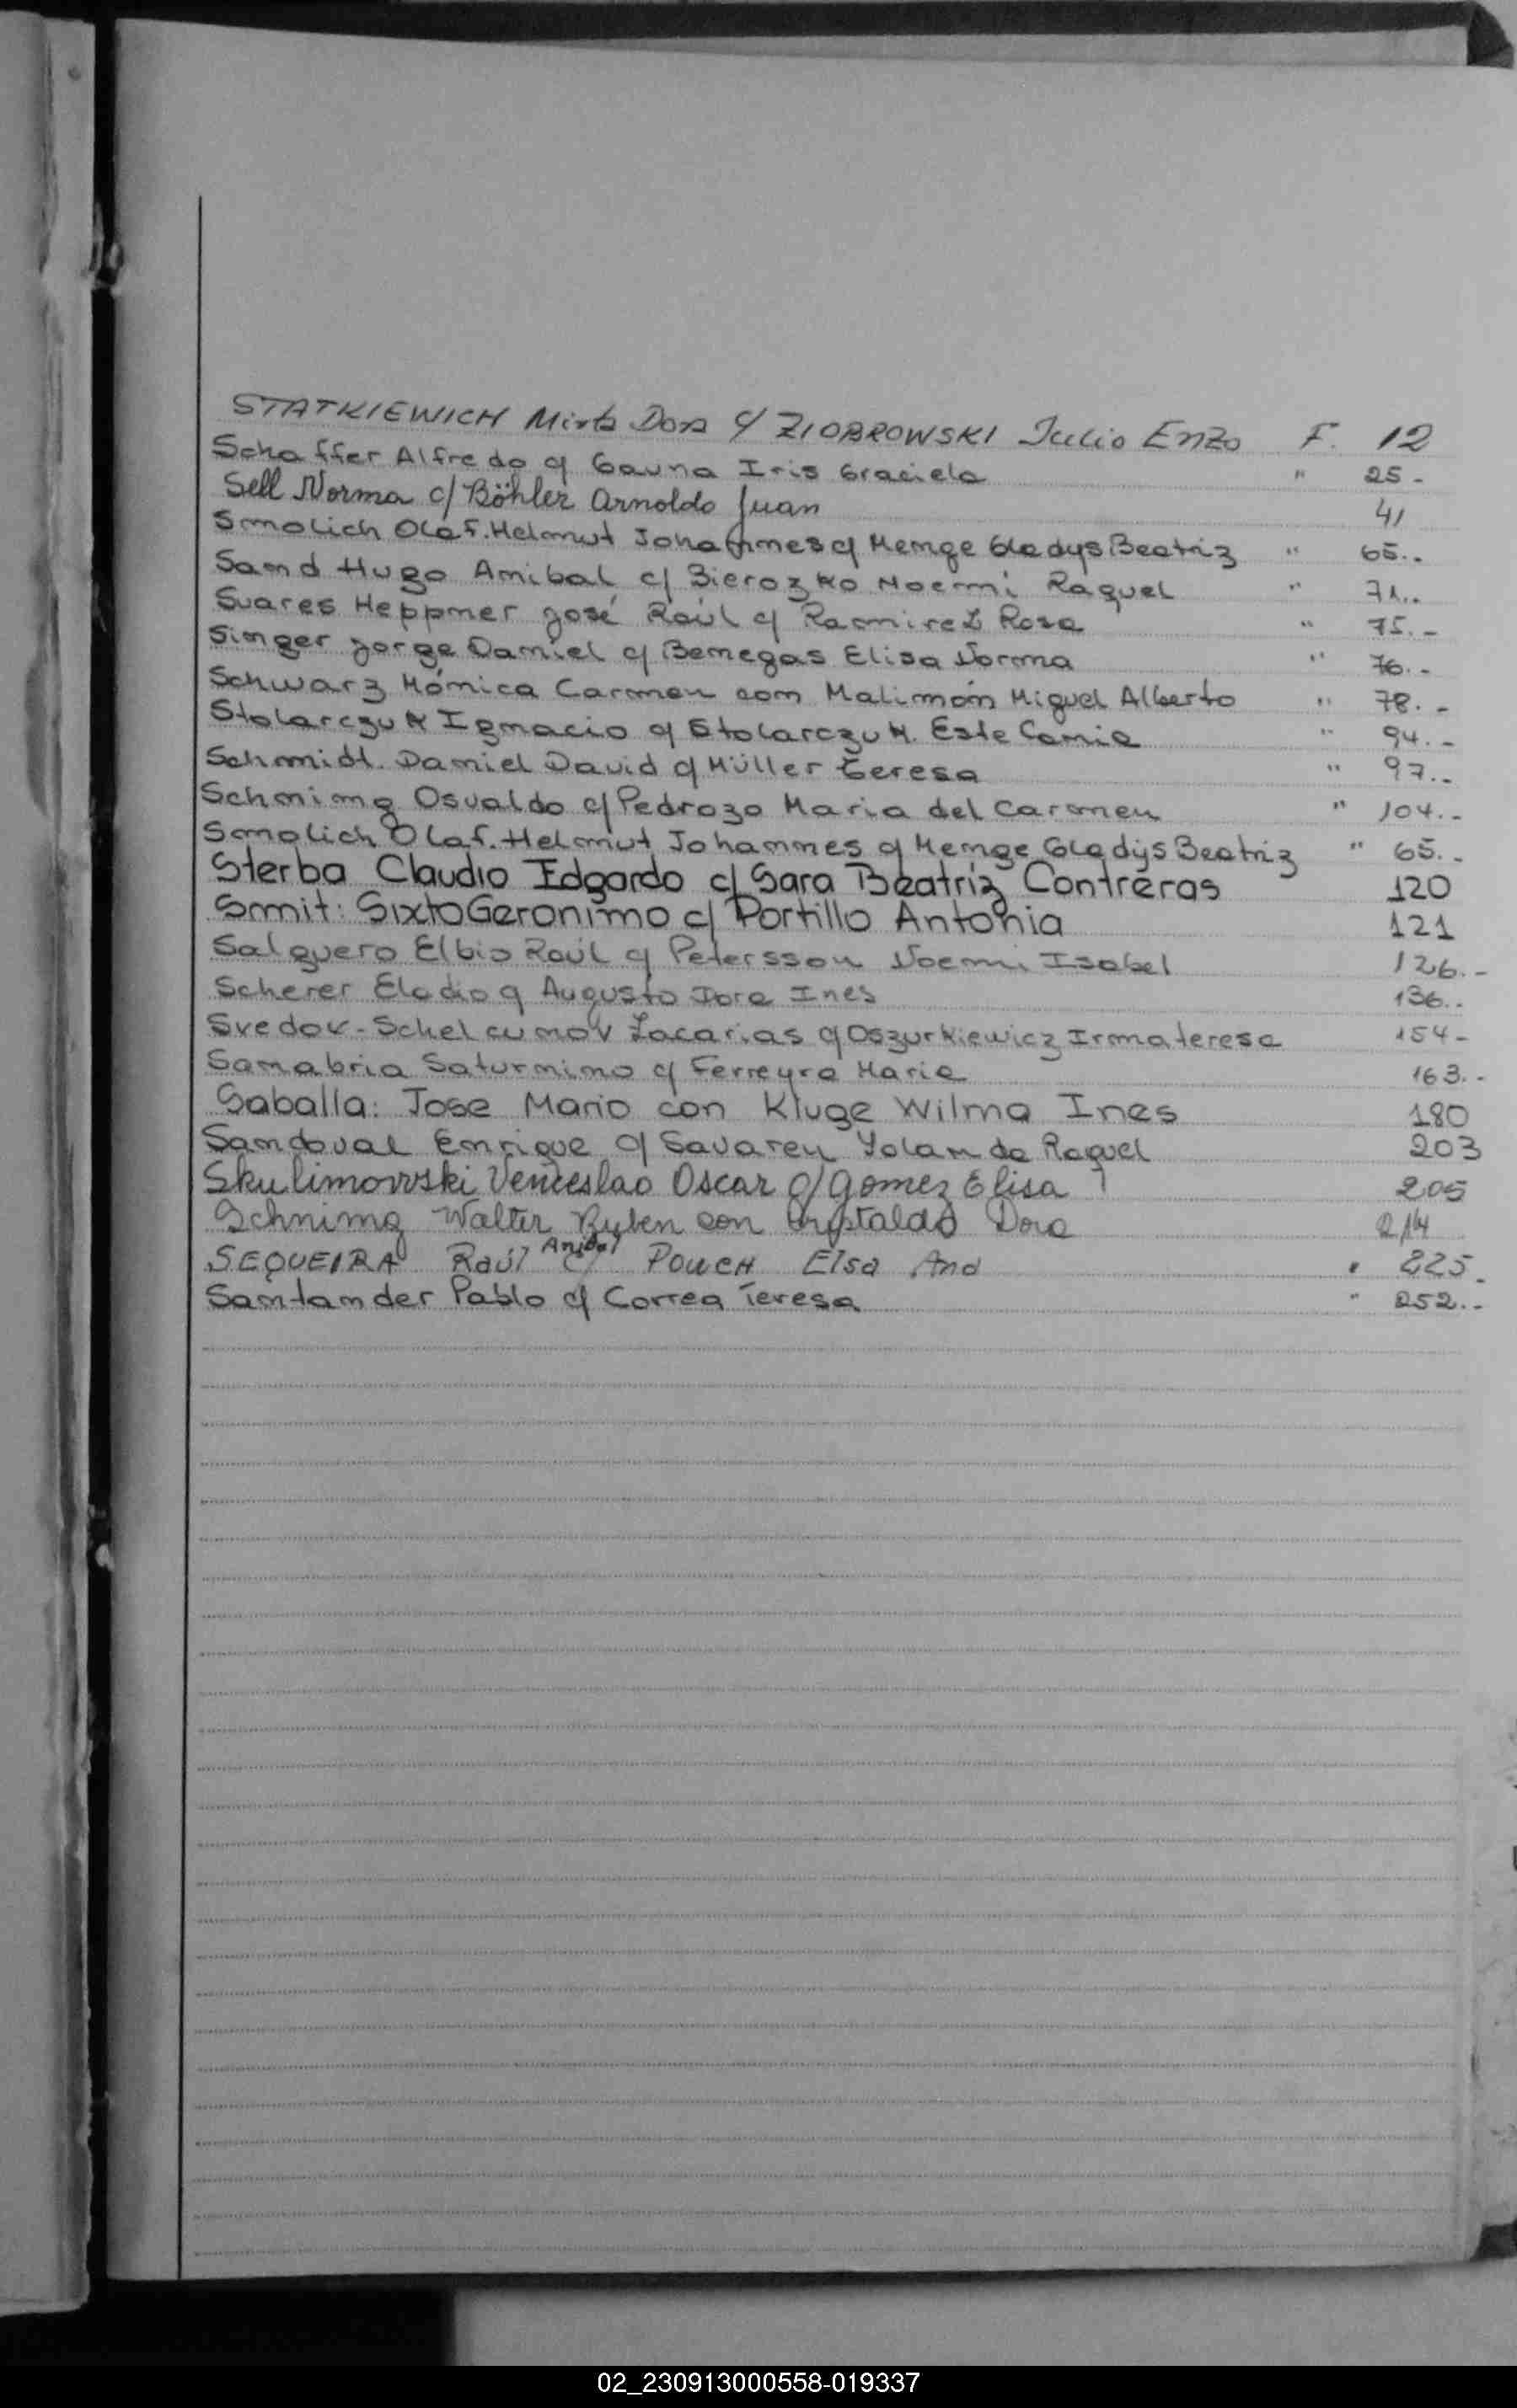 STATKIEWICH Mirta Dora c/ ZIOBROWSKI Julio Enzo F. 12
Schaffer Alfredo c/ Gauna Iris Graciela " 25-
Sell Norma c/ Böhler Arnoldo Juan 41
Smolich Olaf. Helmut Johannnes c/ Menge Gladys Beatriz " 65..
Sand Hugo Anibal c/ Bierozko Noemi Raquel " 71..
Suares Heppner José Raúl c/ Ramirez Rosa " 75.-
Singer Jorge Daniel c/ Benegas Elisa Norma " 76.-
Schwarz Mónica Carmen con Malimón Miguel Alberto " 78.-
Stolarczuk Ignacio c/ Stolarczuk. Estefania " 94.-
Schmidt. Daniel David c/ Müller Teresa " 97..
Schning Osvaldo c/ Pedrozo Maria del Carmen " 104.-
Smolich Olaf. Helmut Johannes c/ Menge Gladys Beatriz " 65..
Sterba Claudio Edgardo c/ Sara Beatriz Contreras 120
Smit: Sixto Geronimo c/ Portillo Antonia 121
Salguero Elbio Raúl c/ Petersson Noemi Isabel 126.-
Scherer Eladio c/ Augusto Dora Ines 136..
Svedov-Schelcunov Zacarias c/ Oszurkiewicz Irma teresa 154-
Sanabria Saturnino c/ Ferreyra Maria 163..
Saballa: Jose Mario con Kluge Wilma Ines 180
Sandoval Enrique c/ Savaren Yolanda Raquel 203
Skulimowski Venceslao Oscar c/ Gomez Elisa 205
Schning Walter Ruben con Cristaldo Dora 214
SEQUEIRA Raúl Anibal c/ POUCH Elsa Ana " 225
Santander Pablo c/ Correa Teresa " 252..
02_230913000558-019337